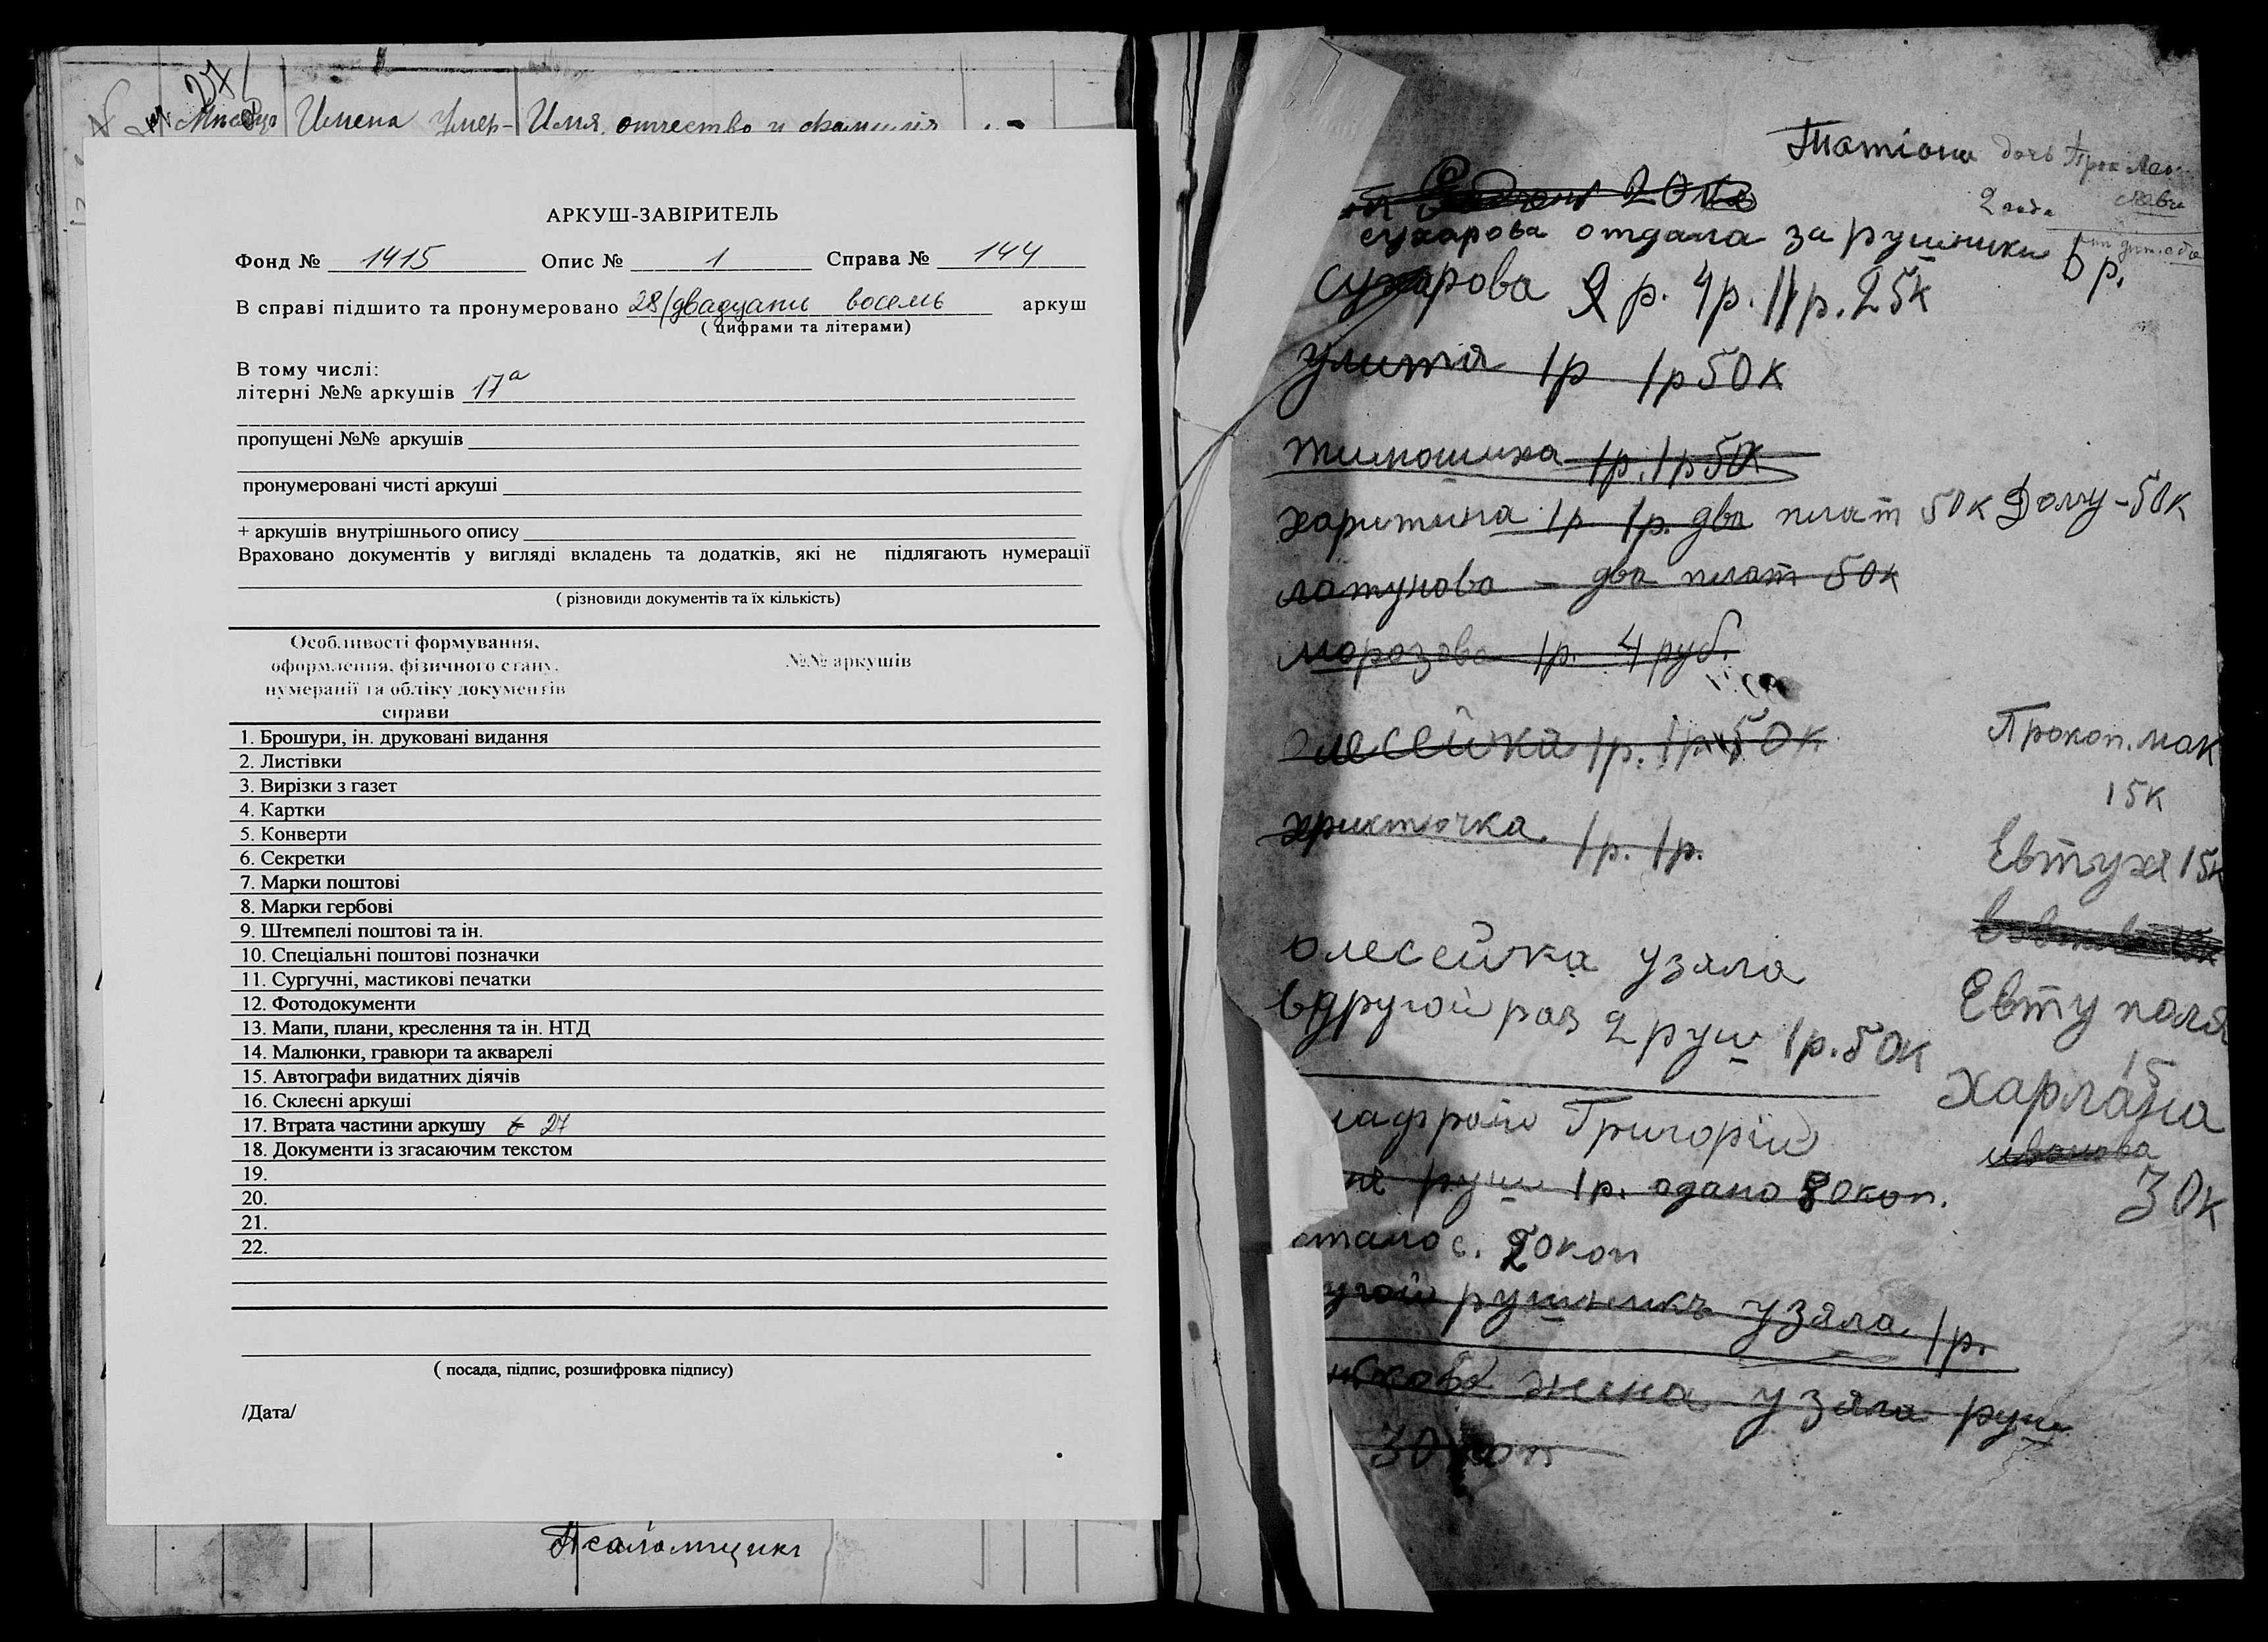 27
Имена Умер-
Имя, отчество и фамилия
АРКУШ-ЗАВІРИТЕЛЬ
Фонд № 1415 Опис № 1 Справа № 144
В справі підшито та пронумеровано 28/двадцать восемь аркуш
( цифрами та літерами)
В тому числі:
літерні №№ аркушів 17а
пропущені №№ аркушів
пронумеровані чисті аркуші
+ аркушів внутрішнього опису
Враховано документів у вигляді вкладень та додатків, які не підлягають нумерації
( різновиди документів та їх кількість)
Особливості формування,
оформлення, фізичного стану,
нумерації та обліку документів
справи
№№ аркушів
1. Брошури, ін. друковані видання
2. Листівки
3. Вирізки з газет
4. Картки
5. Конверти
6. Секретки
7. Марки поштові
8. Марки гербові
9. Штемпелі поштові та ін.
10. Спеціальні поштові позначки
11. Сургучні, мастикові печатки
12. Фотодокументи
13. Мапи, плани, креслення та ін. НТД
14. Малюнки, гравюри та акварелі
15. Автографи видатних діячів
16. Склеєні аркуші
17. Втрата частини аркушу 27
18. Документи із згасаючим текстом
19.
20.
21.
22.
( посада, підпис, розшифровка підпису)
/Дата/
Псаломщикъ
Татіана дочь
2 года
20к
сухарова отдала за рушники 6 р.
сухарова 2 р. 4р. 1р. 25к
улитя 1р 1р 50к
тимошиха 1р. 1р 50к
харитина 1р. 1р. два плат 50к Долгу - 50к
латунова - два плат 50к
морозова 1р. 4 руб.
олесейка 1р. 1р 50к
христючка 1р. 1р.
олесейка узяла
вдругой раз 2 руш 1р. 50к
Григорій
руш 1р. одано 80коп.
стало с. 20коп
угой рушникъ узяла 1р.
жина узяла руш
30 коп
Прокоп. мак
15к
Евтухя 15к
Евту поля
15
Харлана
иванова
30к